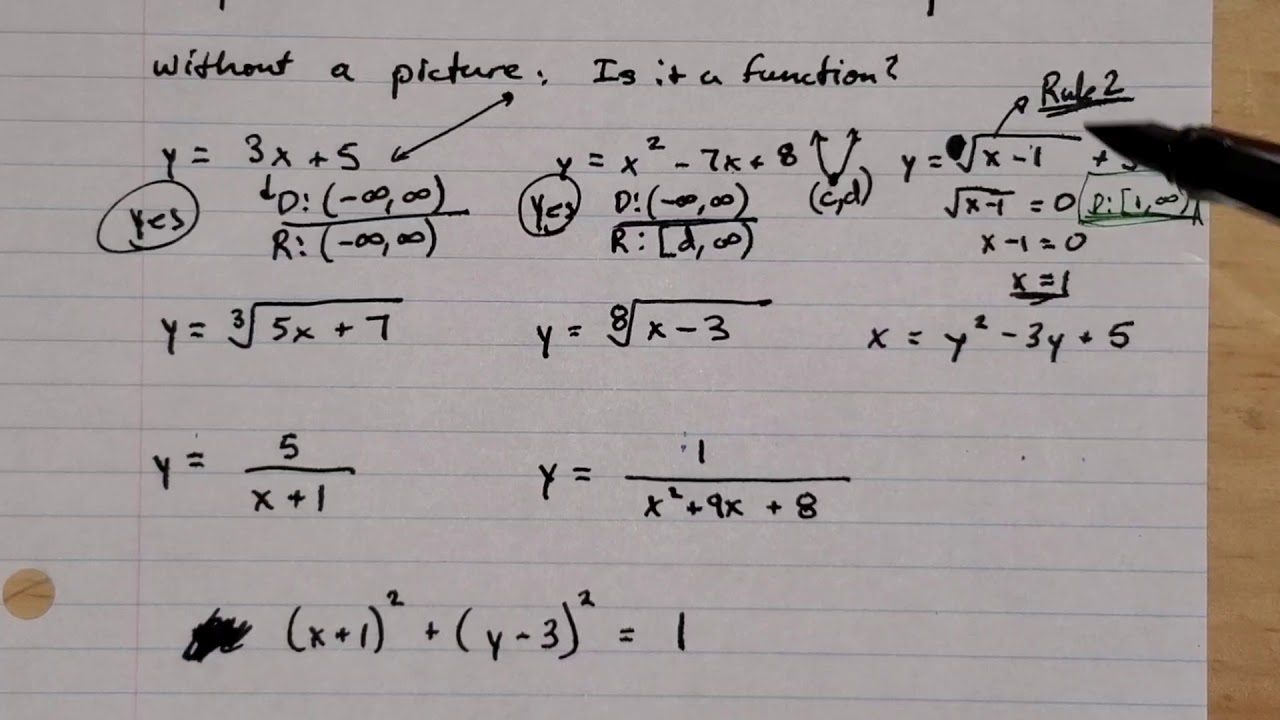 without a picture. Is it a function?
Rule 2
y = 3x + 5
y = x² - 7x + 8
y = √(x - 1) +
yes
D: (-∞, ∞)
R: (-∞, ∞)
yes
D: (-∞, ∞)
R: [d, ∞)
(c, d)
√(x-1) = 0
D: [1, ∞)
x - 1 = 0
x = 1
y = ∛(5x + 7)
y = ⁸√(x - 3)
x = y² - 3y + 5
y = 5/(x + 1)
y = 1/(x² + 9x + 8)
(x+1)² + (y-3)² = 1